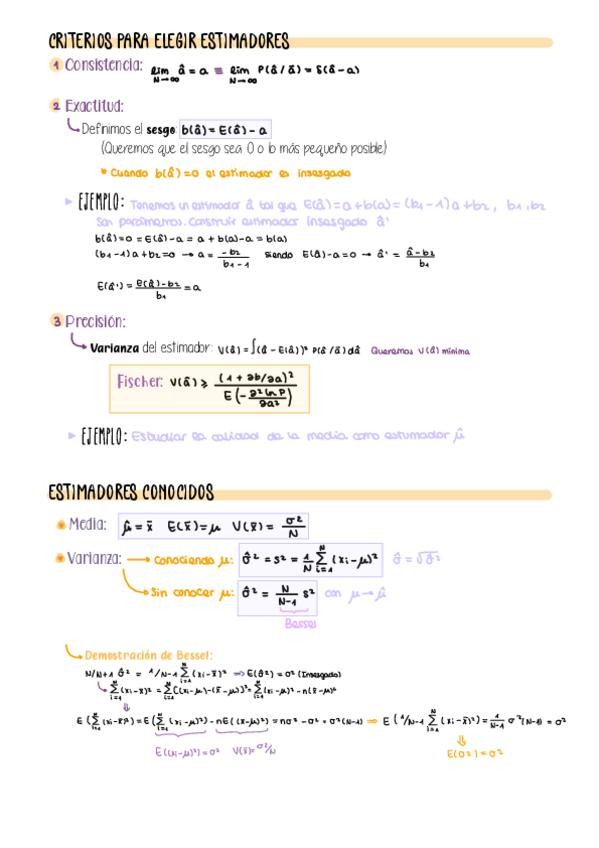 CRITERIOS PARA ELEGIR ESTIMADORES
1 Consistencia: lim N→∞ â = a ≡ lim N→∞ P(â/a) = δ(â-a)
2 Exactitud:
Definimos el sesgo b(â) = E(â) - a
(Queremos que el sesgo sea 0 o lo más pequeño posible)
* Cuando b(â)=0 el estimador es insesgado
EJEMPLO: Tenemos un estimador â tal que E(â) = a + b(a) = (b1-1)a + b2, b1, b2
son parámetros. Construir estimador insesgado â'
b(â)=0 = E(â)-a = a + b(a)-a = b(a)
(b1-1)a + b2=0 → a = -b2/(b1-1) siendo E(â)-a=0 → â' = (â-b2)/b1
E(â') = (E(â)-b2)/b1 = a
3 Precisión:
Varianza del estimador: V(â) = ∫(â - E(â))² P(â/a) dâ Queremos V(â) mínima
Fischer: V(â) ⩾ (1 + ∂b/∂a)² / E(-∂² ln P/∂a²)
EJEMPLO: Estudiar la calidad de la media como estimador μ̂
ESTIMADORES CONOCIDOS
Media: μ̂ = x̄ E(x̄) = μ V(x̄) = σ²/N
Varianza: → Conociendo μ: σ̂² = s² = 1/N Σ i=1 N (xi-μ)² σ̂ = √σ̂²
Sin conocer μ: σ̂² = N/(N-1) s² con μ → μ̂
Bessel
Demostración de Bessel:
N/N+1 σ̂² = 1/N-1 Σ i=1 N (xi-x̄)² ⇒ E(σ̂²) = σ² (Insesgado)
Σ i=1 N (xi-x̄)² = Σ i=1 N [(xi-μ)-(x̄-μ)]² = Σ i=1 N (xi-μ)² - n(x̄-μ)²
E(Σ i=1 N (xi-x̄)²) = E(Σ i=1 N (xi-μ)²) - nE((x-μ)²) = nσ² - σ² = σ²(N-1) ⇒ E(1/N-1 Σ i=1 N (xi-x̄)²) = 1/N-1 σ²(N-1) = σ²
E((xi-μ)²) = σ² V(x̄) = σ²/N
E(σ²) = σ²